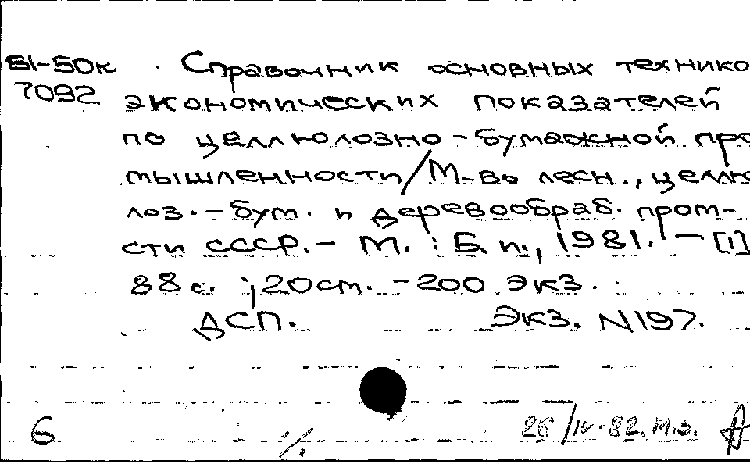 81-50к Справочник основных технико
7092 экономических показателей
по целлюлозно-бумажной про
мышленности/М-во лесн., целлю
лоз.-бум. и деревообраб. пром-
сти СССР.- М. : Б.и., 1981. - [1]
88 с. ; 20 cm. - 200 экз.
ДСП. Экз. N197.
6 26/IV-82. М.э.